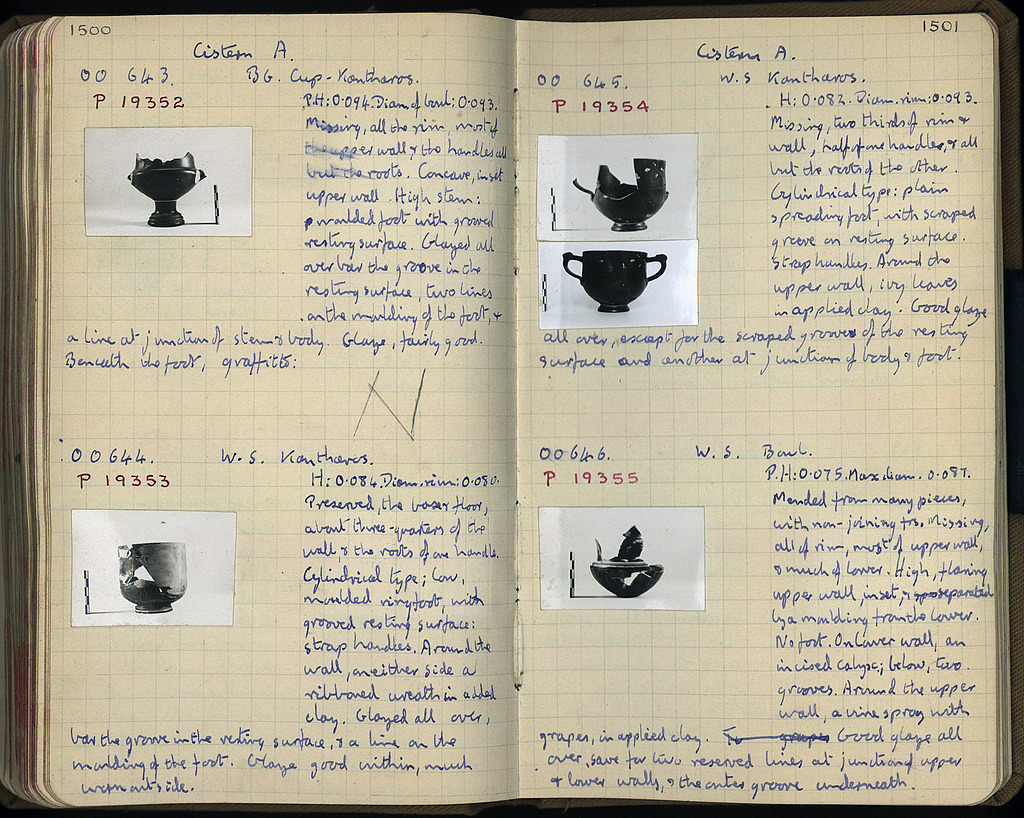 1500
Cistern A.
OO 643. BG. Cup-Kantharos.
P 19352
P.H: 0.094. Diam. of bowl: 0.093.
Missing, all the rim, most of
the upper wall & the handles all
but the roots. Concave, inset
upper wall. High stem:
moulded foot with grooved
resting surface. Glazed all
over bar the groove in the
resting surface, two lines
on the moulding of the foot, &
a line at junction of stem & body. Glaze, fairly good.
Beneath the foot, graffito:
N
OO 644. W.S. Kantharos.
P 19353
H: 0.084. Diam. rim: 0.080.
Preserved, the base, floor,
about three-quarters of the
wall, & the roots of one handle.
Cylindrical type; low,
moulded ring foot, with
grooved resting surface:
strap handles. Around the
wall, on either side a
ribboned wreath in added
clay. Glazed all over,
bar the groove in the resting surface, & a line on the
moulding of the foot. Glaze good within, much
worn outside.
1501
Cistern A.
OO 645. W.S Kantharos.
P 19354
H: 0.082. Diam. rim: 0.093.
Missing, two thirds of rim &
wall, half of one handle, & all
but the roots of the other.
Cylindrical type: plain
spreading foot, with scraped
groove on resting surface.
Strap handles. Around the
upper wall, ivy leaves
in applied clay. Good glaze
all over, except for the scraped grooves of the resting
surface and another at junction of body & foot.
OO 646. W.S. Bowl.
P 19355
P.H: 0.075. Max. diam. 0.087.
Mended from many pieces,
with non-joining frs. Missing,
all of rim, most of upper wall,
& much of lower. High, flaring
upper wall, inset, & separated
by a moulding from the lower.
No foot. On lower wall, an
incised calyx; below, two
grooves. Around the upper
wall, a vine spray with
grapes, in applied clay. Good glaze all
over, save for two reserved lines at junction of upper
& lower walls, & the outer groove underneath.